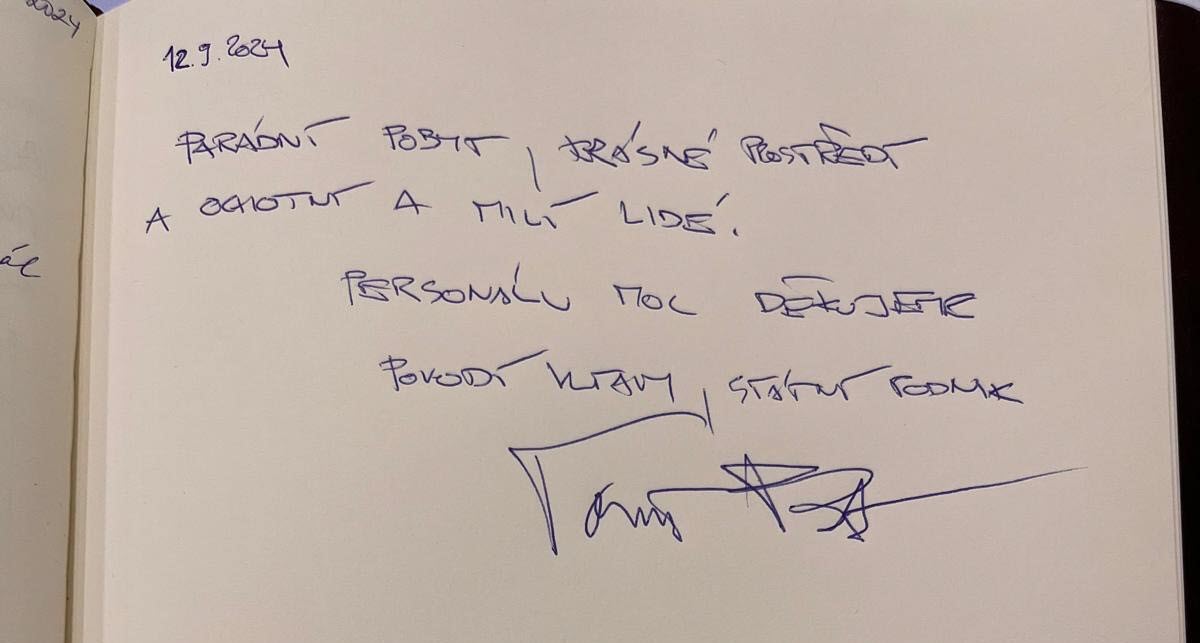 2024
ál
12.9.2024
PARÁDNÍ POBYT, KRÁSNÉ PROSTŘEDÍ
A OCHOTNÍ A MILÍ LIDÉ.
PERSONÁLU MOC DĚKUJEME
POVODÍ VLTAVY, STÁTNÍ PODNIK